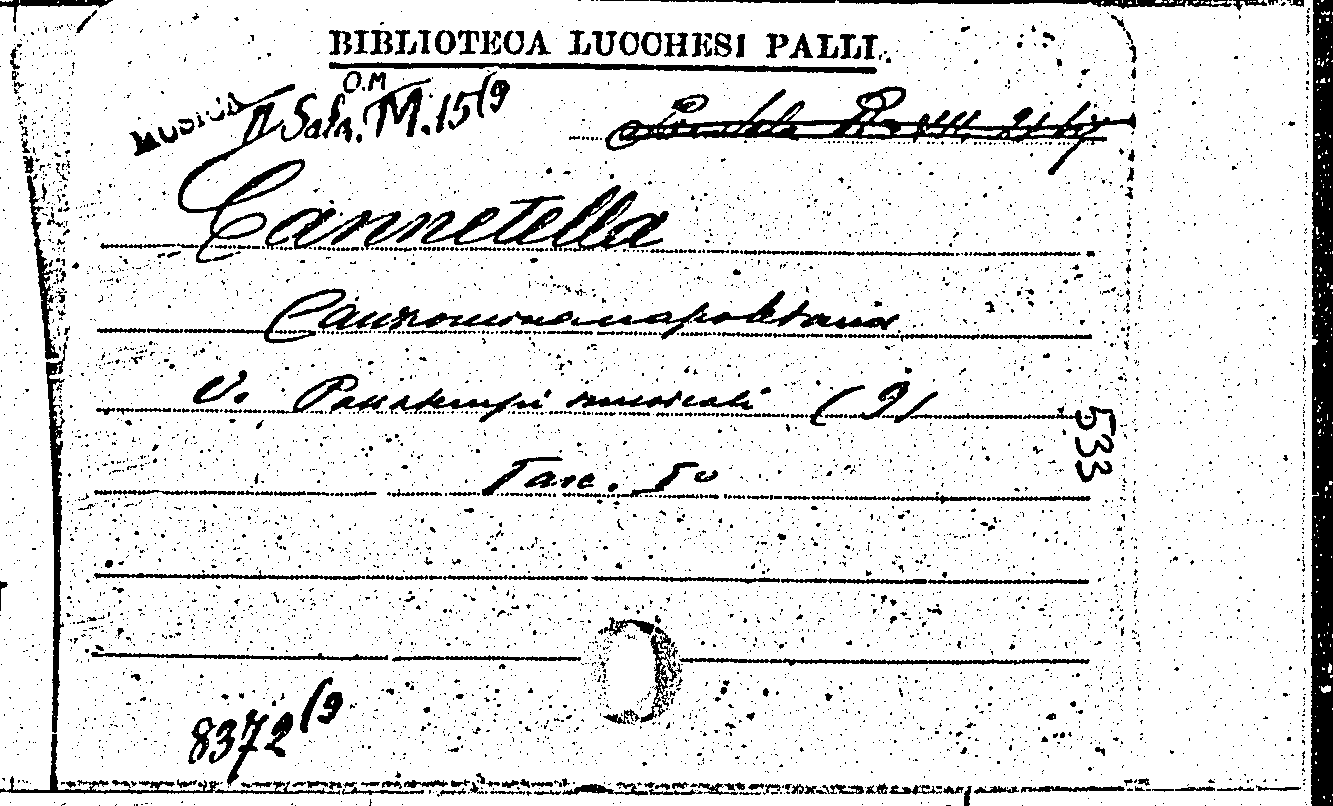 BIBLIOTECA LUCCHESI PALLI
O.M
MUSICA II Sala. M. 15(9
Cannetella
Canzoncina napoletana
V. Passatempi musicali (9)
533
Fasc. Iº
8372(9